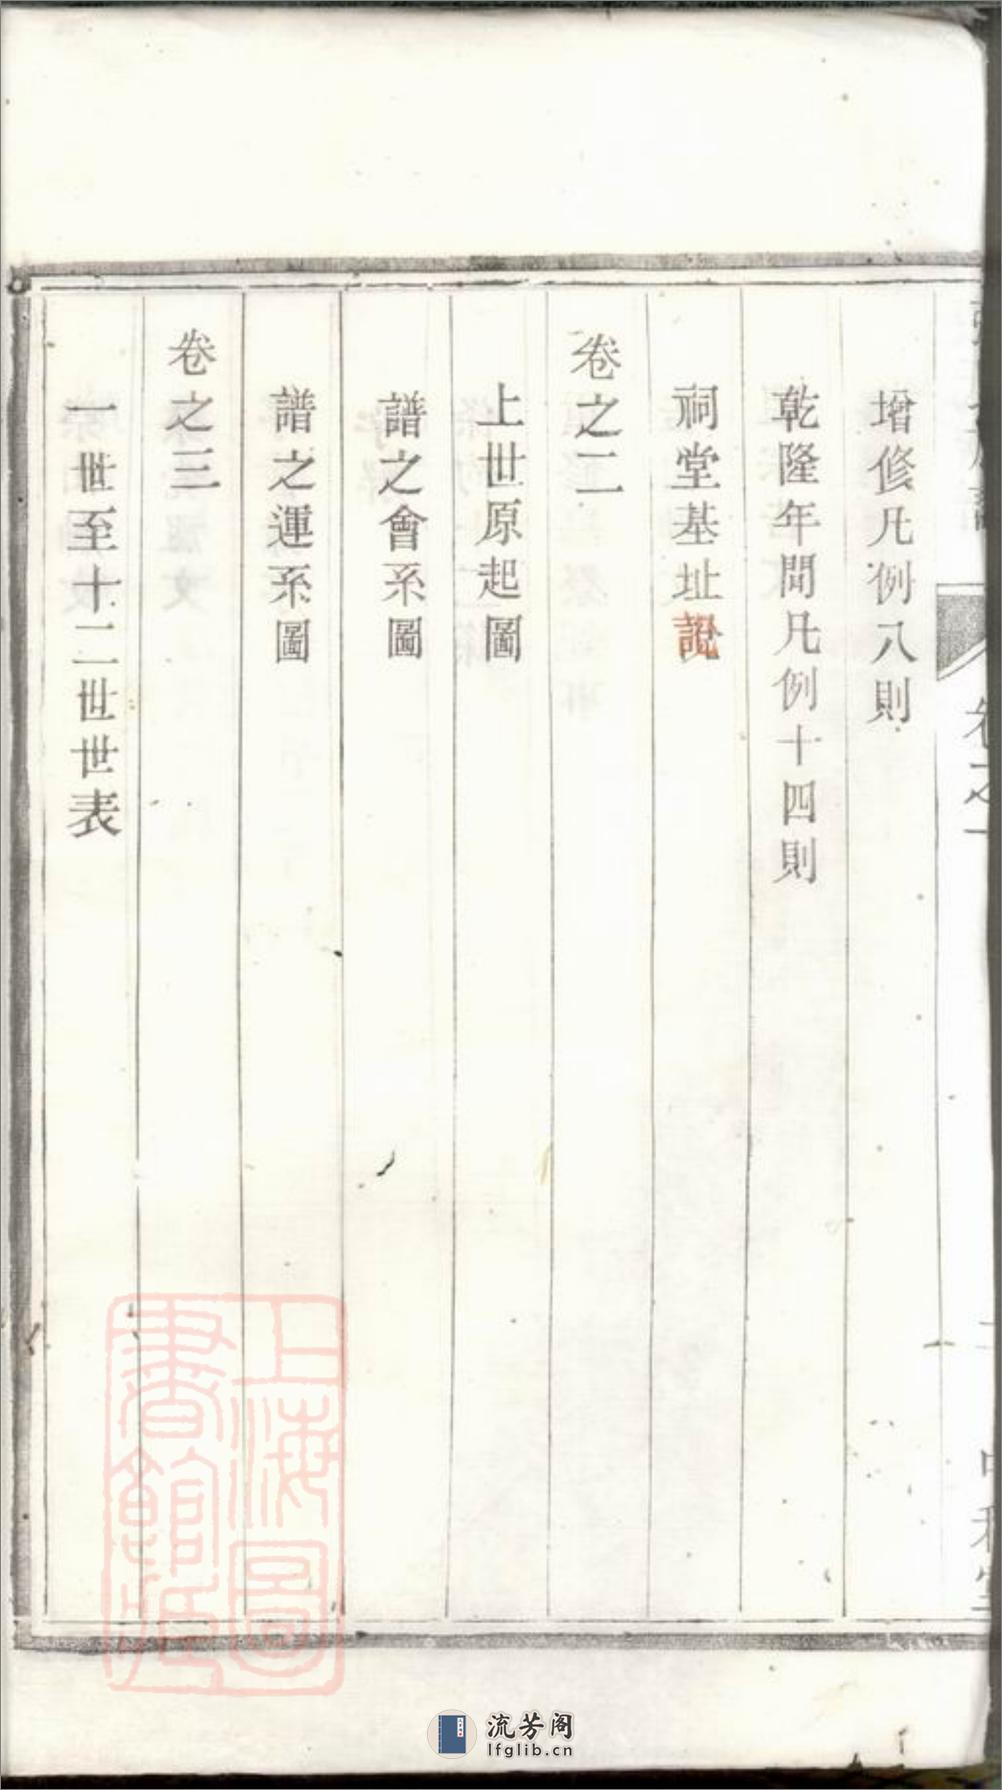 卷之一
增修凡例八則
乾隆年間凡例十四則
祠堂基址說
卷之二
上世原起圖
譜之會系圖
譜之運系圖
卷之三
一世至十二世世表
上海圖
書館藏
流芳阁
lfglib.cn